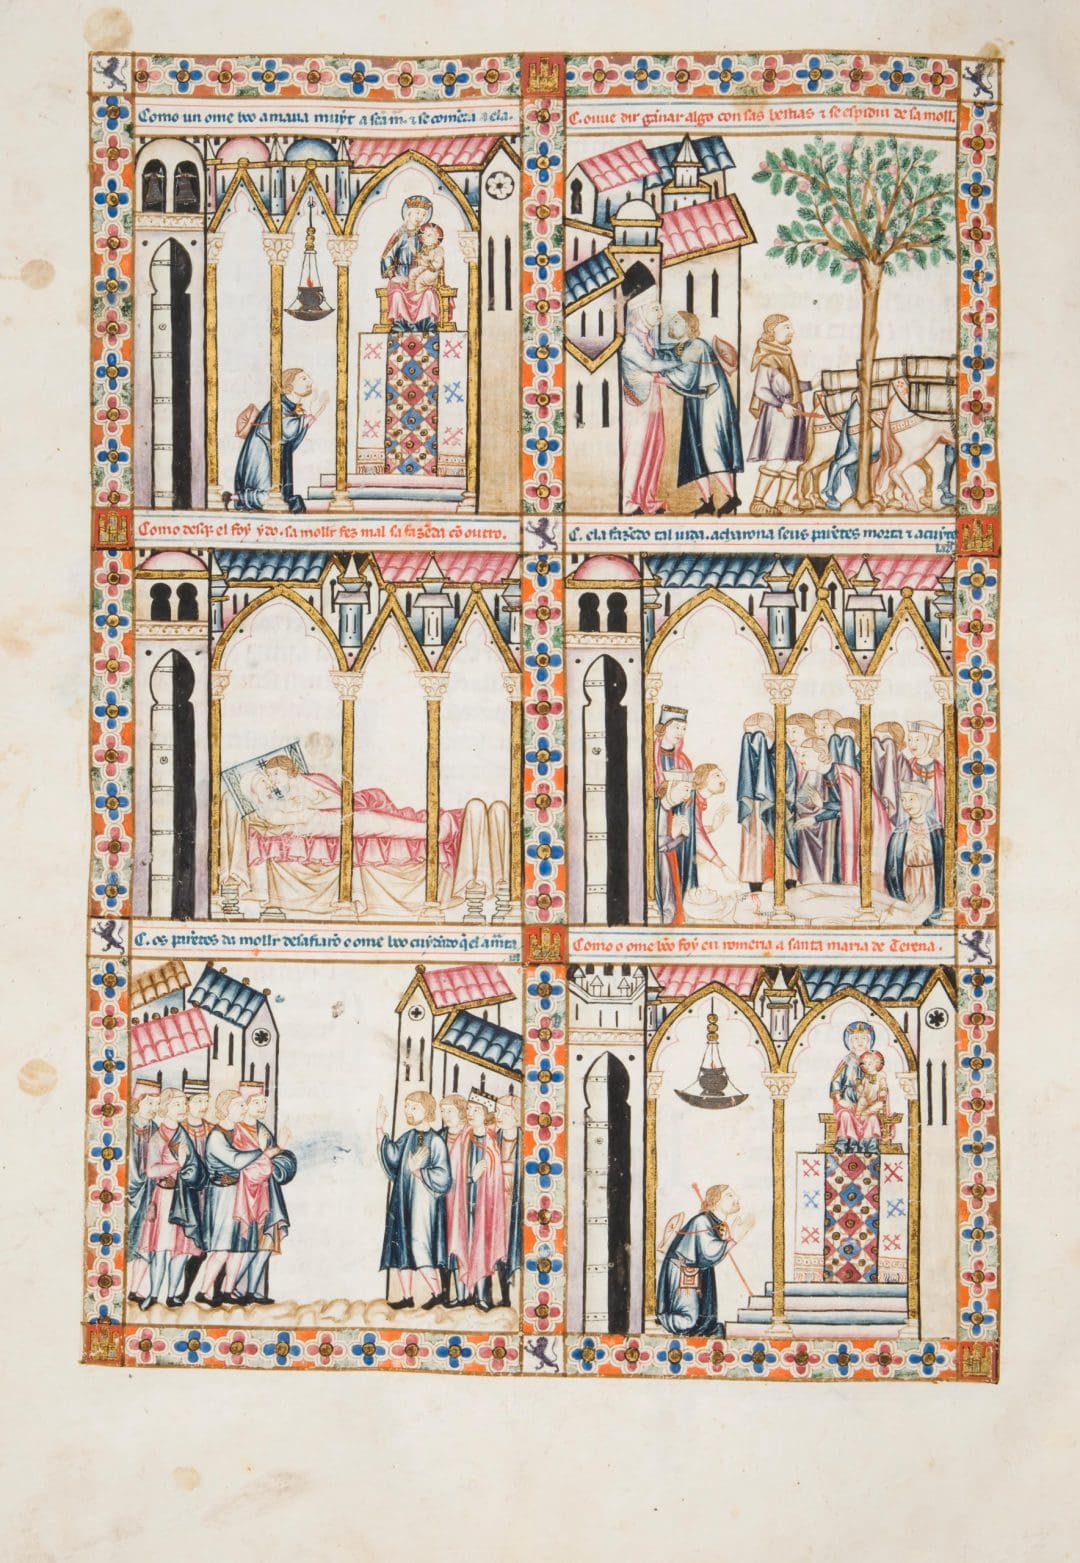 Como un ome boo amaua muyt a sca m. & se comẽda a ela.
C. ouue dir gãnar algo con sas bestias & se espidiu de sa moll.
Como desq̃ el foy ydo. sa mollr fez mal sa fazẽda cõ outro.
C. ela fazẽdo tal uida. acharona seus parẽtes morta &
C. os parẽtes da mollr desafiarõ o ome boo cuydãdo q̃ el a
Como o ome bõo foy en romeria a santa maria de Terena.